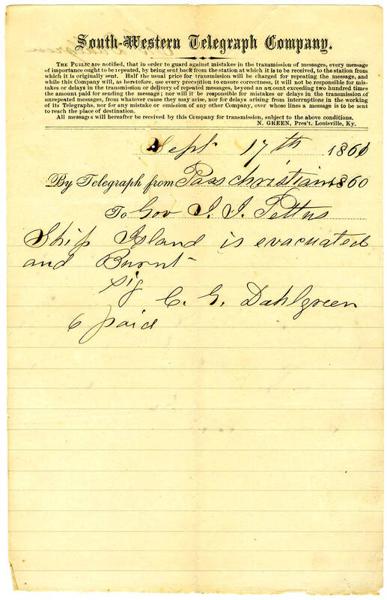 South-Western Telegraph Company.
THE PUBLIC are notified, that in order to guard against mistakes in the transmission of messages, every message
of importance ought to be repeated, by being sent back from the station at which it is to be received, to the station from
which it is originally sent. Half the usual price for transmission will be charged for repeating the message, and
while this Company will, as heretofore, use every precaution to ensure correctness, it will not be responsible for mis-
takes or delays in the transmission or delivery of repeated messages, beyond an amount exceeding two hundred times
the amount paid for sending the message; nor will it be responsible for mistakes or delays in the transmission of
unrepeated messages, from whatever cause they may arise, nor for delays arising from interruptions in the working
of its Telegraphs, nor for any mistake or omission of any other Company, over whose lines a message is to be sent
to reach the place of destination.
All messages will hereafter be received by this Company for transmission, subject to the above conditions.
N. GREEN, Pres't. Louisville, Ky.
Sept 17th 1861
By Telegraph from Pass Christian 1860
To Gov J. J. Pettus
Ship Island is evacuated
and Burnt
sig
C. G. Dahlgreen
6 paid